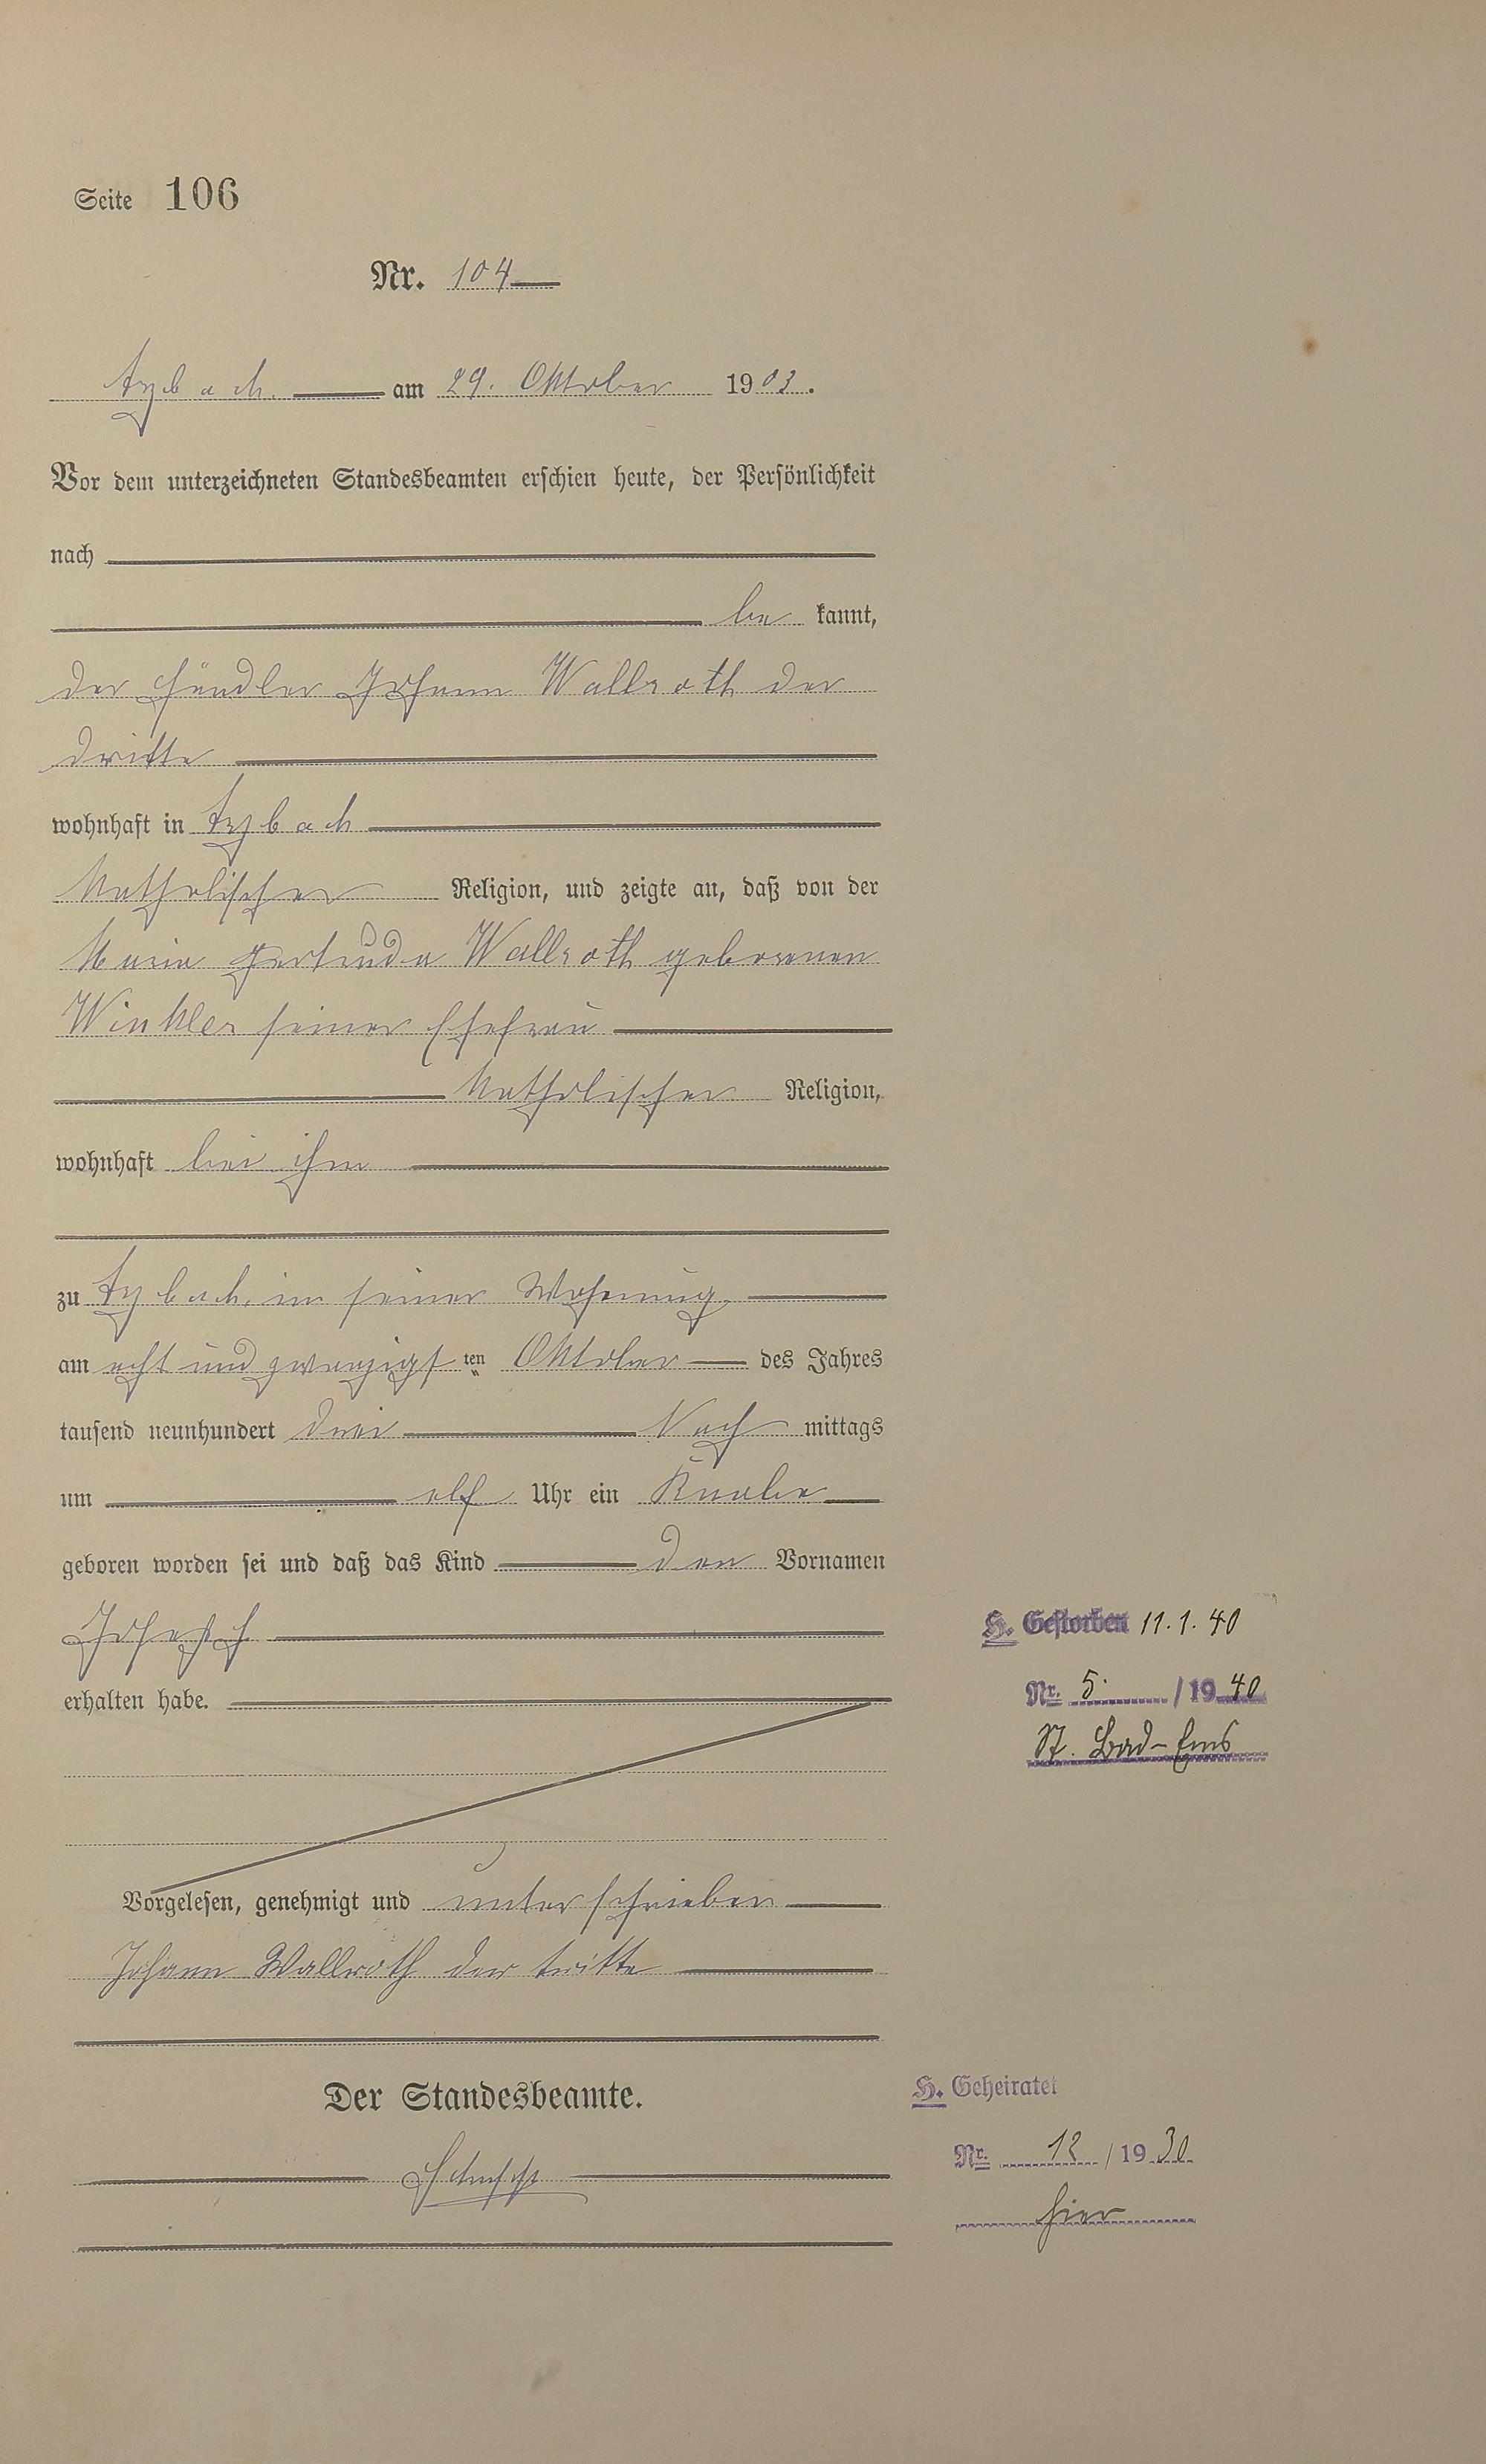 Seite 106
Nr. 104
Arzbach am 29. Oktober 1903.
Vor dem unterzeichneten Standesbeamten erschien heute, der Persönlichkeit
nach
be kannt,
der Händler Johann Wallroth der
dritte
wohnhaft in Arzbach
katholischer Religion, und zeigte an, daß von der
Maria Gertruda Wallroth geborenen
Winkler seiner Ehefrau
katholischer Religion,
wohnhaft bei ihm
zu Arzbach in seiner Wohnung
am acht und zwanzigsten Oktober des Jahres
tausend neunhundert drei Nach mittags
um elf Uhr ein Knabe
geboren worden sei und daß das Kind den Vornamen
Joseph
erhalten habe.
Vorgelesen, genehmigt und unterschrieben
Johann Wallroth der tritte
Der Standesbeamte.
H. Gestorben 11.1.40
Nr. 5. / 1940
St. Bad-Ems
H. Geheiratet
Nr. 12 / 1930
hier